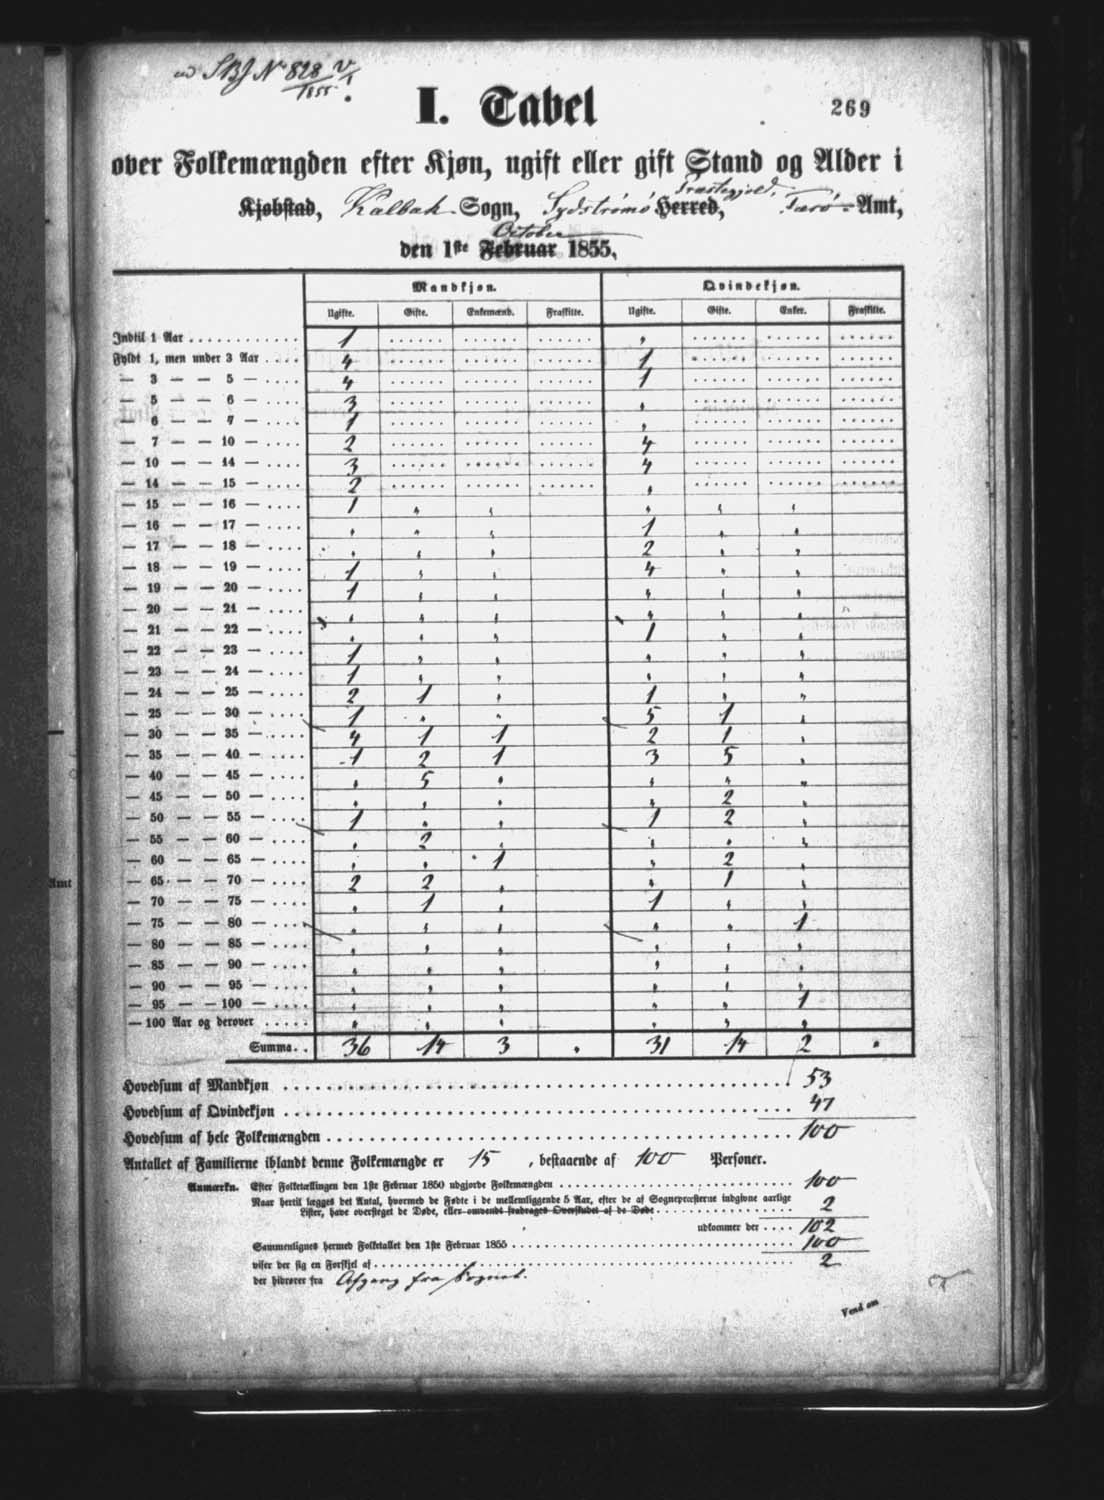 ad SBJ No 828/1855
I. Tabel
269
over Folkemængden efter Kjøn, ugift eller gift Stand og Alder i
Præstegjeld,
Kjøbstad, Kalbak Sogn, Sydstrømø Herred, Færø Amt,
October
den 1ste Februar 1855.
Mandkjøn. Qvindekjøn.
Ugifte. Gifte. Enkemænd. Fraskilte. Ugifte. Gifte. Enker. Fraskilte.
Indtil 1 Aar 1 ,
Fyldt 1, men under 3 Aar 4 1
— 3 — — 5 — 4 1
— 5 — — 6 — 3 ,
— 6 — — 7 — 1 ,
— 7 — — 10 — 2 4
— 10 — — 14 — 3 4
— 14 — — 15 — 2 ,
— 15 — — 16 — 1 , , , , ,
— 16 — — 17 — , , , 1 , ,
— 17 — — 18 — , , , 2 , ,
— 18 — — 19 — 1 , , 4 , ,
— 19 — — 20 — 1 , , , , ,
— 20 — — 21 — , , , , , ,
— 21 — — 22 — , , , 1 , ,
— 22 — — 23 — 1 , , , , ,
— 23 — — 24 — 1 , , , , ,
— 24 — — 25 — 2 1 , 1 , ,
— 25 — — 30 — 1 , , 5 1 ,
— 30 — — 35 — 4 1 1 2 1 ,
— 35 — — 40 — 1 2 1 3 5 ,
— 40 — — 45 — , 5 , , , ,
— 45 — — 50 — , , , , 2 ,
— 50 — — 55 — 1 , , 1 2 ,
— 55 — — 60 — , 2 , , , ,
— 60 — — 65 — , , 1 , 2 ,
— 65 — — 70 — 2 2 , , 1 ,
— 70 — — 75 — , 1 , 1 , ,
— 75 — — 80 — , , , , , 1
— 80 — — 85 — , , , , , ,
— 85 — — 90 — , , , , , ,
— 90 — — 95 — , , , , , ,
— 95 — — 100 — , , , , , 1
— 100 Aar og derover , , , , , ,
Summa 36 14 3 , 31 14 2 ,
Hovedsum af Mandkjøn 53
Hovedsum af Qvindekjøn 47
Hovedsum af hele Folkemængden 100
Antallet af Familierne iblandt denne Folkemængde er 15, bestaaende af 100 Personer.
Anmærkn. Efter Folketællingen den 1ste Februar 1850 udgjorde Folkemængden 100
Naar hertil lægges det Antal, hvormed de Fødte i de mellemliggende 5 Aar, efter de af Sognepræsterne indgivne aarlige
Lister, have oversteget de Døde, eller omvendt fradrages Overskudet af de Døde 2
udkommer der 102
Sammenlignes hermed Folketallet den 1ste Februar 1855 100
viser der sig en Forskjel af 2
der hidrører fra Afgang fra Sognet.
Vend om
Amt